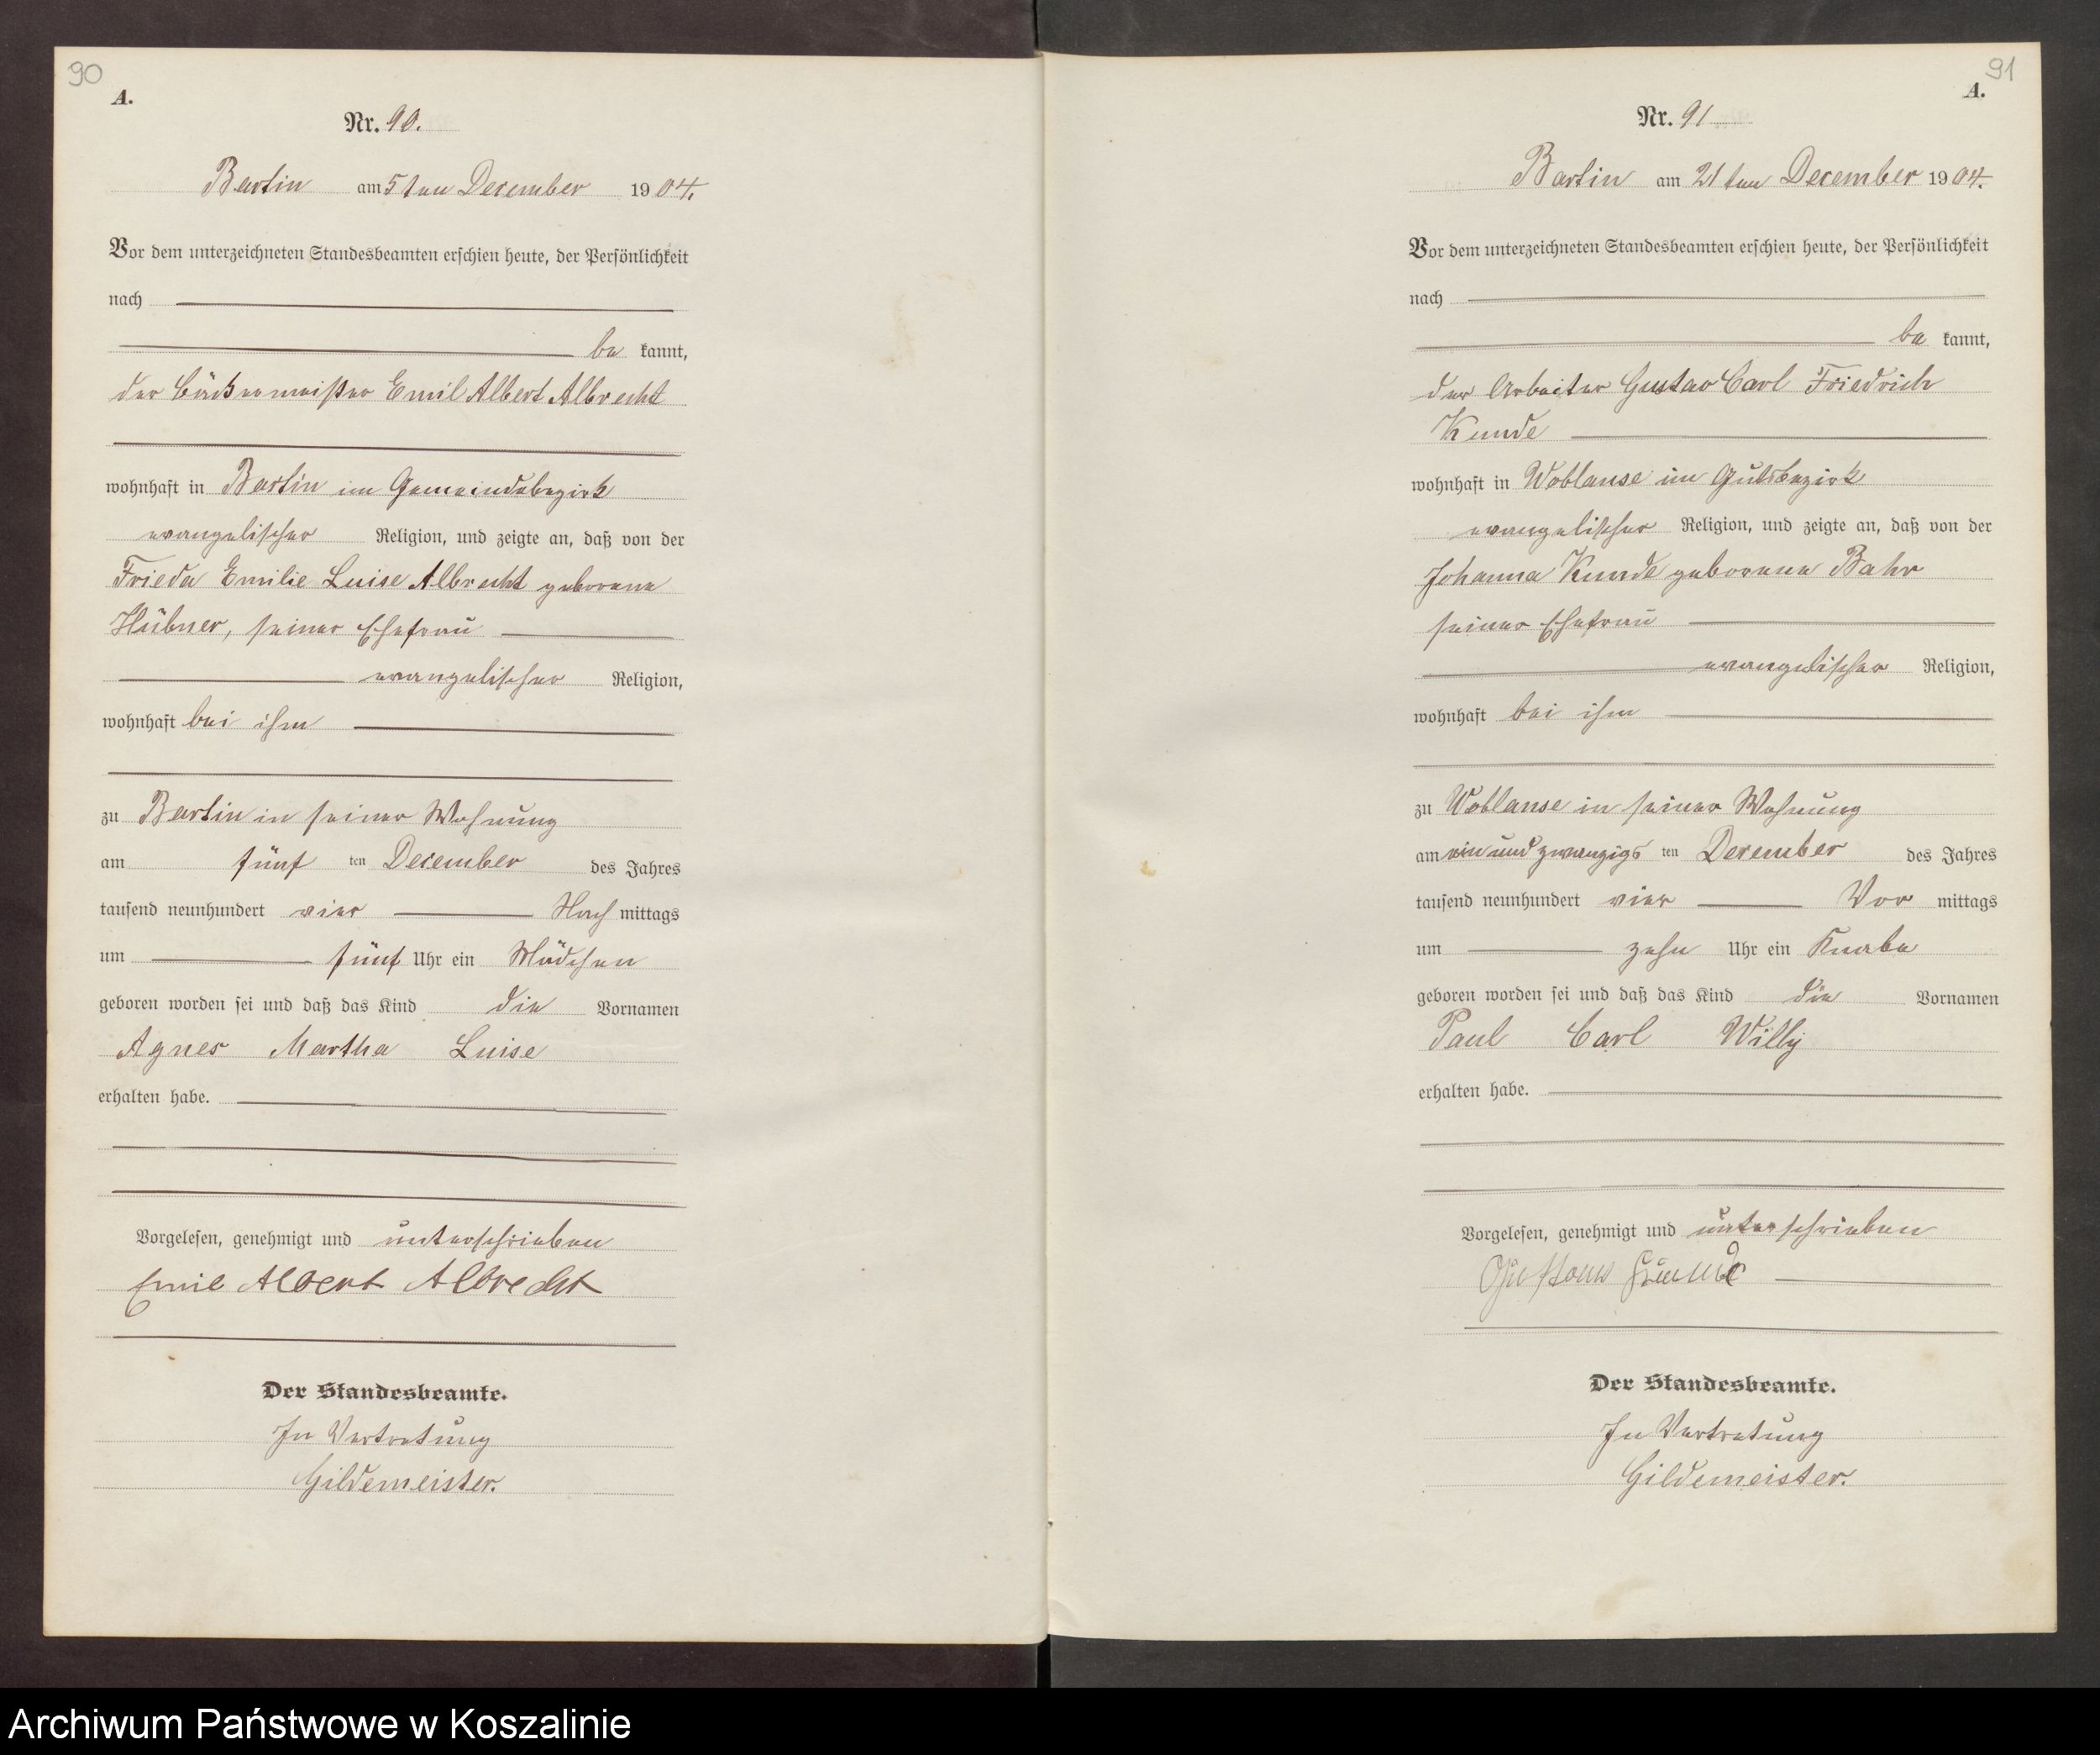 90
A.
Nr. 90.
Bartin am 5ten December 1904.
Vor dem unterzeichneten Standesbeamten erschien heute, der Persönlichkeit
nach
be kannt,
der Bäckermeister Emil Albert Albrecht
wohnhaft in Bartin im Gemeindebezirk
evangelischer Religion, und zeigte an, daß von der
Frieda Emilie Luise Albrecht geborene
Hübner, seiner Ehefrau
evangelischer Religion,
wohnhaft bei ihm
zu Bartin in seiner Wohnung
am fünf ten December des Jahres
tausend neunhundert vier Nach mittags
um fünf Uhr ein Mädchen
geboren worden sei und daß das Kind die Vornamen
Agnes Martha Luise
erhalten habe.
Vorgelesen, genehmigt und unterschrieben
Emil Albert Albrecht
Der Standesbeamte.
In Vertretung
Gildemeister.
91
A.
Nr. 91
Bartin am 21ten December 1904.
Vor dem unterzeichneten Standesbeamten erschien heute, der Persönlichkeit
nach
be kannt,
der Arbeiter Gustav Carl Friedrich
Kunde
wohnhaft in Woblanse im Gutsbezirk
evangelischer Religion, und zeigte an, daß von der
Johanna Kunde geborene Bahr
seiner Ehefrau
evangelischer Religion,
wohnhaft bei ihm
zu Woblanse in seiner Wohnung
am ein und zwanzigs ten December des Jahres
tausend neunhundert vier Vor mittags
um zehn Uhr ein Knabe
geboren worden sei und daß das Kind die Vornamen
Paul Carl Willy
erhalten habe.
Vorgelesen, genehmigt und unterschrieben
Gustav Kunde
Der Standesbeamte.
In Vertretung
Gildemeister.
Archiwum Państwowe w Koszalinie